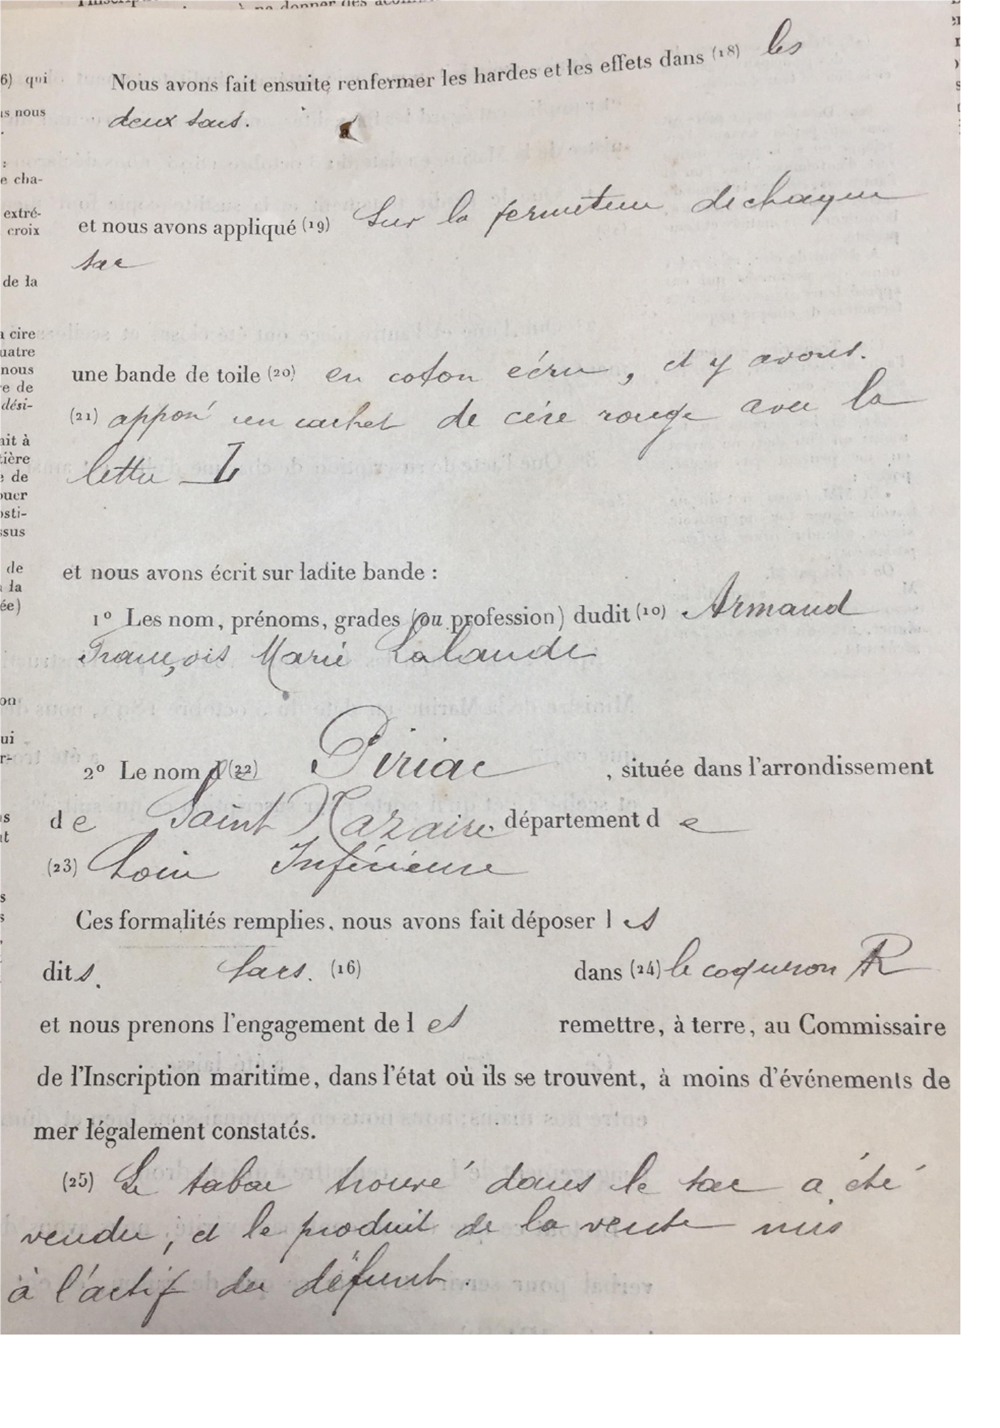 Nous avons fait ensuite renfermer les hardes et les effets dans (18) les
deux sacs.
et nous avons appliqué (19) Sur la fermeture de chaque
sac
une bande de toile (20) en coton écru, et y avons.
(21) apposé un cachet de cire rouge avec la
lettre L
et nous avons écrit sur ladite bande :
1° Les nom, prénoms, grades (ou profession) dudit (10) Armand
François Marie Lalande
2° Le nom (22) Piriac , située dans l'arrondissement
de Saint Nazaire. département de
(23) Loire Inférieure
Ces formalités remplies, nous avons fait déposer les
dits. sacs. (16) dans (24) le coqueron AR
et nous prenons l'engagement de les remettre, à terre, au Commissaire
de l'Inscription maritime, dans l'état où ils se trouvent, à moins d'événements de
mer légalement constatés.
(25) Le tabac trouvé dans le sac a été
vendu, et le produit de la vente mis
à l'actif du défunt.
6) qui
s nous
:
e cha-
extré-
croix
de la
a cire
uatre
nous
e de
dési-
ait à
ière
e de
ouer
osti-
ssus
de
la
ée)
on
ui
r-
s